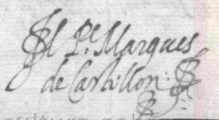 El Pe. Marques
de Castillon.